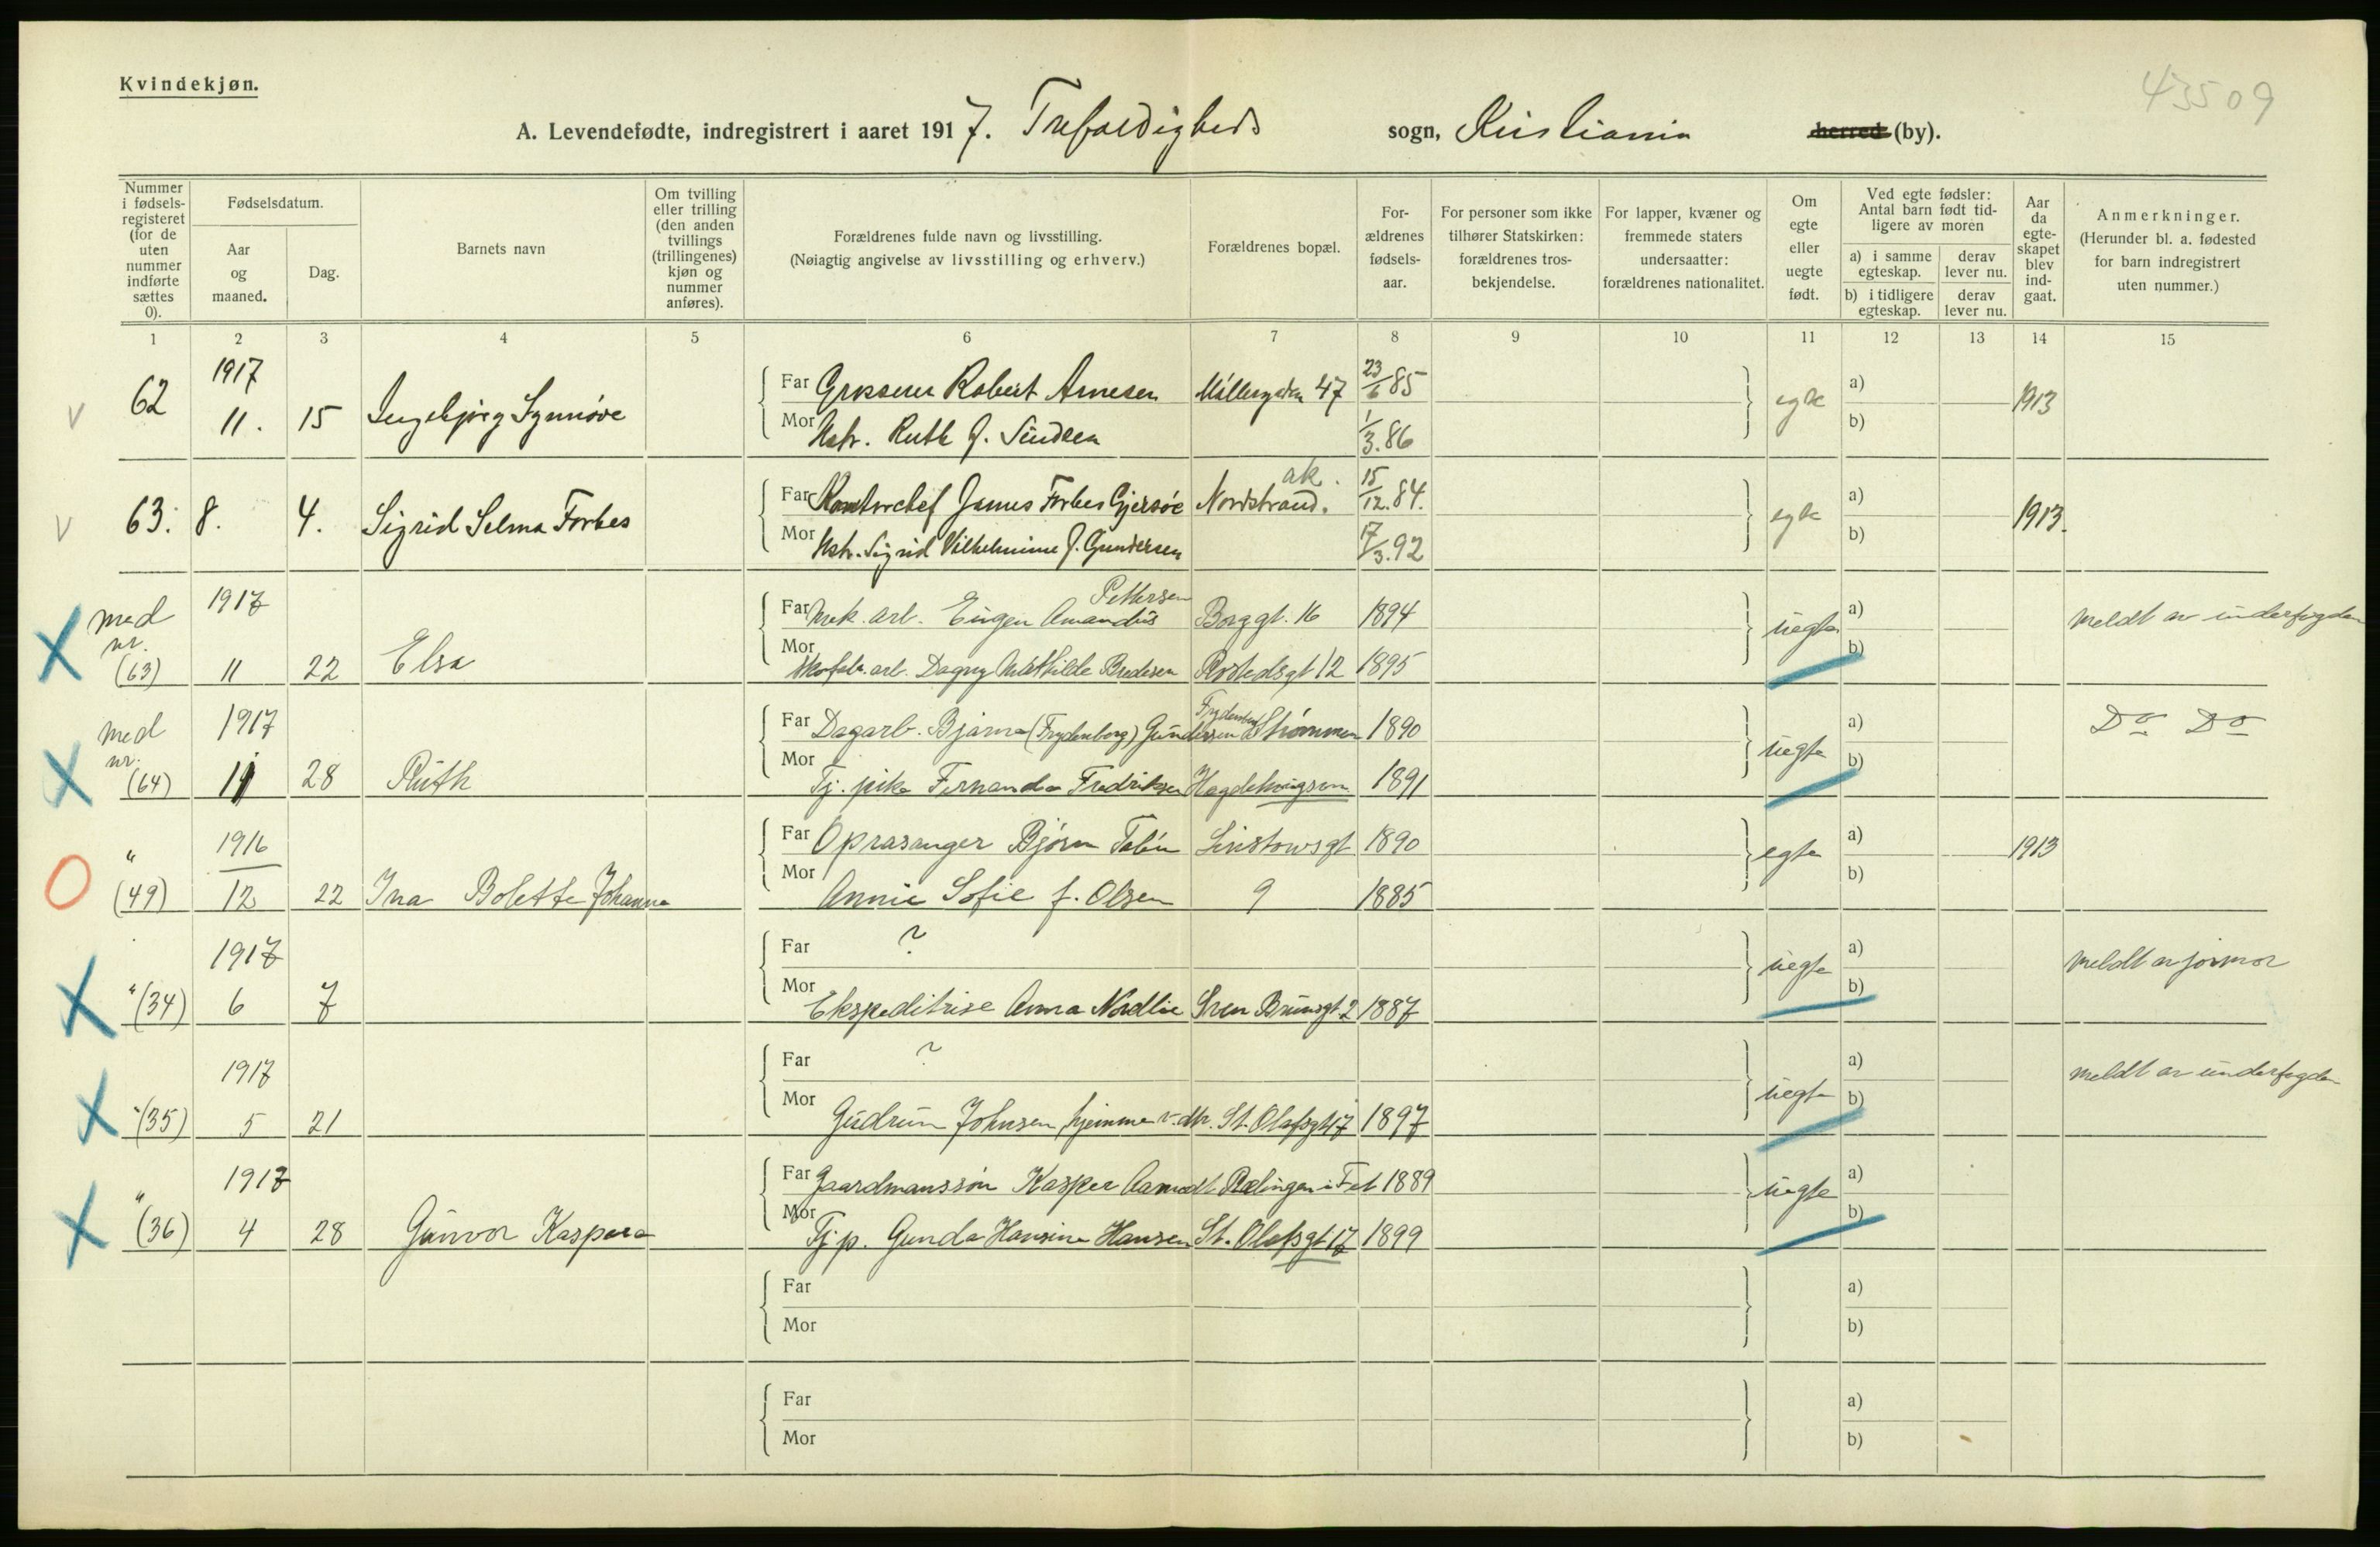 Kvindekjøn.
43509
A. Levendefødte, indregistrert i aaret 1917. Trefoldigheds sogn, Kristiania herred (by).
Nummer i fødselsregisteret (for de uten nummer indførte sættes 0).
Fødselsdatum.
Aar og maaned.
Dag.
Barnets navn
Om tvilling eller trilling (den anden tvillings (trillingenes) kjøn og nummer anføres).
Forældrenes fulde navn og livsstilling.
(Nøiagtig angivelse av livsstilling og erhverv.)
Forældrenes bopæl.
Forældrenes fødselsaar.
For personer som ikke tilhører Statskirken: forældrenes trosbekjendelse.
For lapper, kvæner og fremmede staters undersaatter: forældrenes nationalitet.
Om egte eller uegte født.
Ved egte fødsler: Antal barn født tidligere av moren
a) i samme egteskap.
derav lever nu.
b) i tidligere egteskap.
derav lever nu.
Aar da egteskapet blev indgaat.
Anmerkninger.
(Herunder bl. a. fødested for barn indregistrert uten nummer.)
1 2 3 4 5 6 7 8 9 10 11 12 13 14 15
v 62 1917 11. 15 Ingebjørg Synnøve
Far Grosserer Robert Arnesen Møllergaden 47 23/6 85 egte a) 1913
Mor Hstr. Ruth f. 1/3.86 b)
v 63. 8. 4. Sigrid Selma Forbes
Far Kontorchef James Forbes Gjersøe Nordstrand. ak. 15/12.84. egte a) 1913.
Mor Hstr. Sigrid Vilhelmine f. Gundersen 17/3.92 b)
X med nr. (63) 1917 11 22 Elsa
Far Mek. arb. Eugen Amandus Pettersen Borggt. 16 1894 uegte a) meldt av underfogden
Mor Skofabr. arb. Dagny Mathilde Bredesen Rostedsgt 12 1895 b)
X med nr. (64) 1917 11 28 Ruth
Far Dagarb. Bjarne (Frydenborg) Gundersen Frydenborg Strømmen 1890 uegte a) Do Do
Mor Tj. pike Fernanda Fredriksen 1891 b)
O " (49) 1916 12 22 Ina Bolette Johanna
Far Oprasanger Bjørn Talén Linstowsgt 1890 egte a) 1913
Mor Annie Sofie f. Olsen 9 1885 b)
X " (34) 1917 6 7
Far ? uegte a) meldt av jormor
Mor Ekspeditrise Anna Nordlie Sven Brunsgt 2 1887 b)
X " (35) 1917 5 21
Far ? uegte a) meldt av underfogden
Mor Gudrun Johnsen, hjemme v. dtr. St. Olafsgt 17 1897 b)
X " (36) 1917 4 28 Gunvor Kaspara
Far Gaardmannssøn Kasper Aamodt Rælingen i Fet 1889 uegte a)
Mor Tj. p. Gunda Hansine Hansen St. Olafsgt 17 1899 b)
Far a)
Mor b)
Far a)
Mor b)